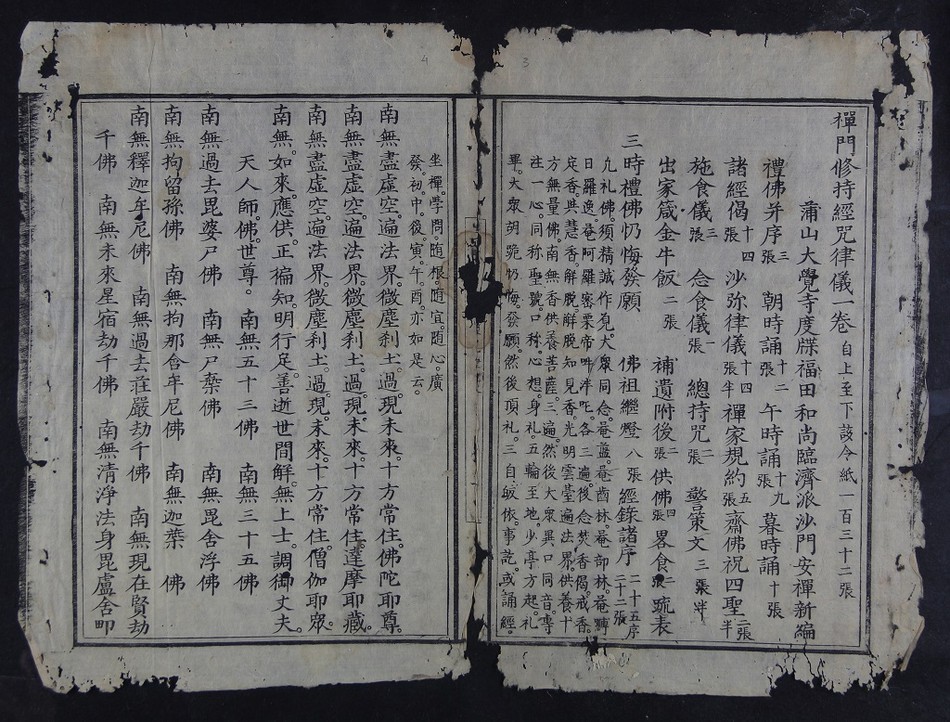 禪門修持經咒律儀一卷 自上至下該今紙一百三十二張
蒲山大覺寺度牒福田和尚臨濟派沙門安禪新編
禮佛并序三張 朝時誦十二張 午時誦十九張 暮時誦十張
諸經偈十四張 沙弥律儀十四張半 禪家規約五張 齋佛祝四聖二張半
施食儀三張 念食儀一 總持咒二張 警策文三張半
出家箴金牛飯二張 補遺附後二 供佛四張 畧食二張 疏表
佛祖繼燈八張 經錄諸序二十五序二十二張
三時禮佛忉悔發願
九礼佛。須精誠作皃。大眾同念。菴藍。菴酋林。菴部林。菴
日羅逸。菴阿羅密栗帝吽泮吒。各三遍。後念焚香偈。戒香。
定香。共慧香。解脫。解脫知見香。光明雲臺遍法界。供養十
方無量佛。南無香供養菩薩。三遍。然後大眾異口同音。專
注一心。同称聖號。口称。心想。身礼。五輪至地。少亭方起。礼
畢。大眾胡跪忉悔。發願。然後頂礼。三自皈依。事訖。或誦經。
坐禪。學問。随根。随宜。随心。廣
發。初。中。後。寅。午。酉。亦如是云。
南無盡虛空。遍法界。微塵利土。過。現。未來。十方常住。佛陀耶尊。
南無盡虛空。遍法界。微塵利土。過。現。未來。十方常住。達摩耶藏。
南無盡虛空。遍法界。微塵利土。過。現。未來。十方常住。僧伽耶眾。
南無。如來。應供。正徧知。明行足。善逝世間解。無上士。調御丈夫。
天人師。佛。世尊。 南無五十三佛 南無三十五佛
南無過去毘婆尸佛 南無尸棄佛 南無毘舍浮佛
南無拘留孫佛 南無拘那含牟尼佛 南無迦葉佛
南無釋迦牟尼佛 南無過去莊嚴劫千佛 南無現在賢劫
千佛 南無未來星宿劫千佛 南無清淨法身毘盧舍那